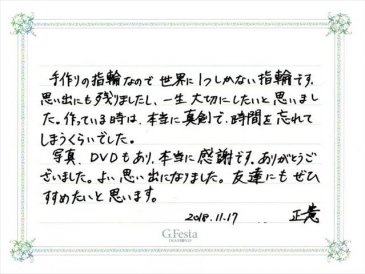 手作りの指輪なので世界に1つしかない指輪です。
思い出にも残りましたし、一生大切にしたいと思いまし
た。作っている時は、本当に真剣で、時間を忘れて
しまうくらいでした。
写真、DVDもあり、本当に感謝です。ありがとうご
ざいました。よい思い出になりました。友達にもぜひ
すすめたいと思います。
2018.11.17
G.Festa